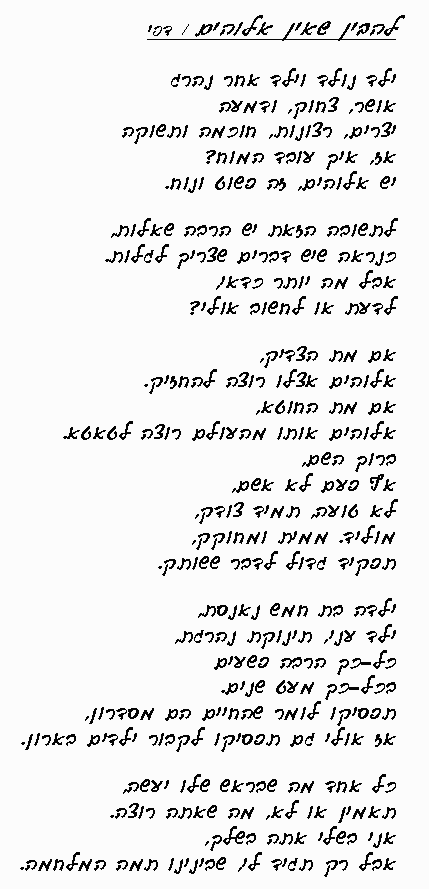 להבין שאין אלוהים / דפי
ילד נולד וילד אחר נהרג
אושר, צחוק, ודמעה
יצרים, רצונות, חוכמה ותשוקה
אז, איך עובד המוח?
יש אלוהים, זה פשוט ונוח.
לתשובה הזאת יש הרבה שאלות,
כנראה שיש דברים שצריך לגלות.
אבל מה יותר כדאי,
לדעת או לחשוב אולי?
אם מת הצדיק,
אלוהים אצלו רוצה להחזיק.
אם מת החוטא,
אלוהים אותו מהעולם רוצה לטאטא.
ברוך השם,
אף פעם לא אשם,
לא טועה, תמיד צודק,
מוליד. ממית ומחוקק,
תפקיד גדול לדבר ששותק.
ילדה בת חמש נאנסת,
ילד עני, תינוקת נהרגת,
כל-כך הרבה פשעים
בכל-כך מעט שנים.
תפסיקו לומר שהחיים הם מסדרון,
אז אולי גם תפסיקו לקבור ילדים בארון.
כל אחד מה שבראש שלו יעשה,
תאמין או לא, מה שאתה רוצה.
אני בשלי אתה בשלך,
אבל רק תגיד לי, שבינינו תמה המלחמה.